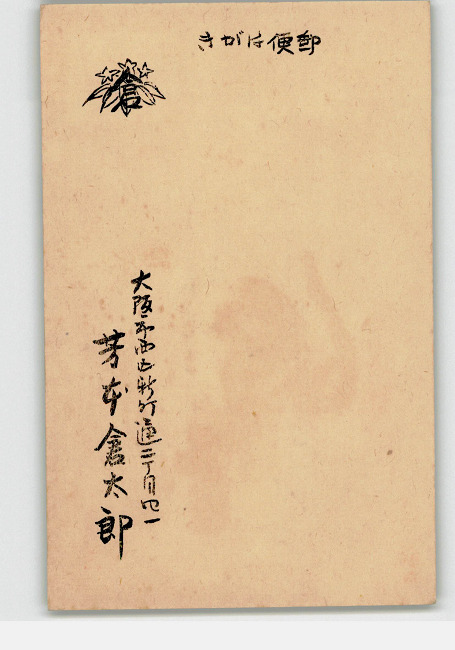 きがは便郵
倉
大阪市西区新町通二丁目四一
芳本倉太郎